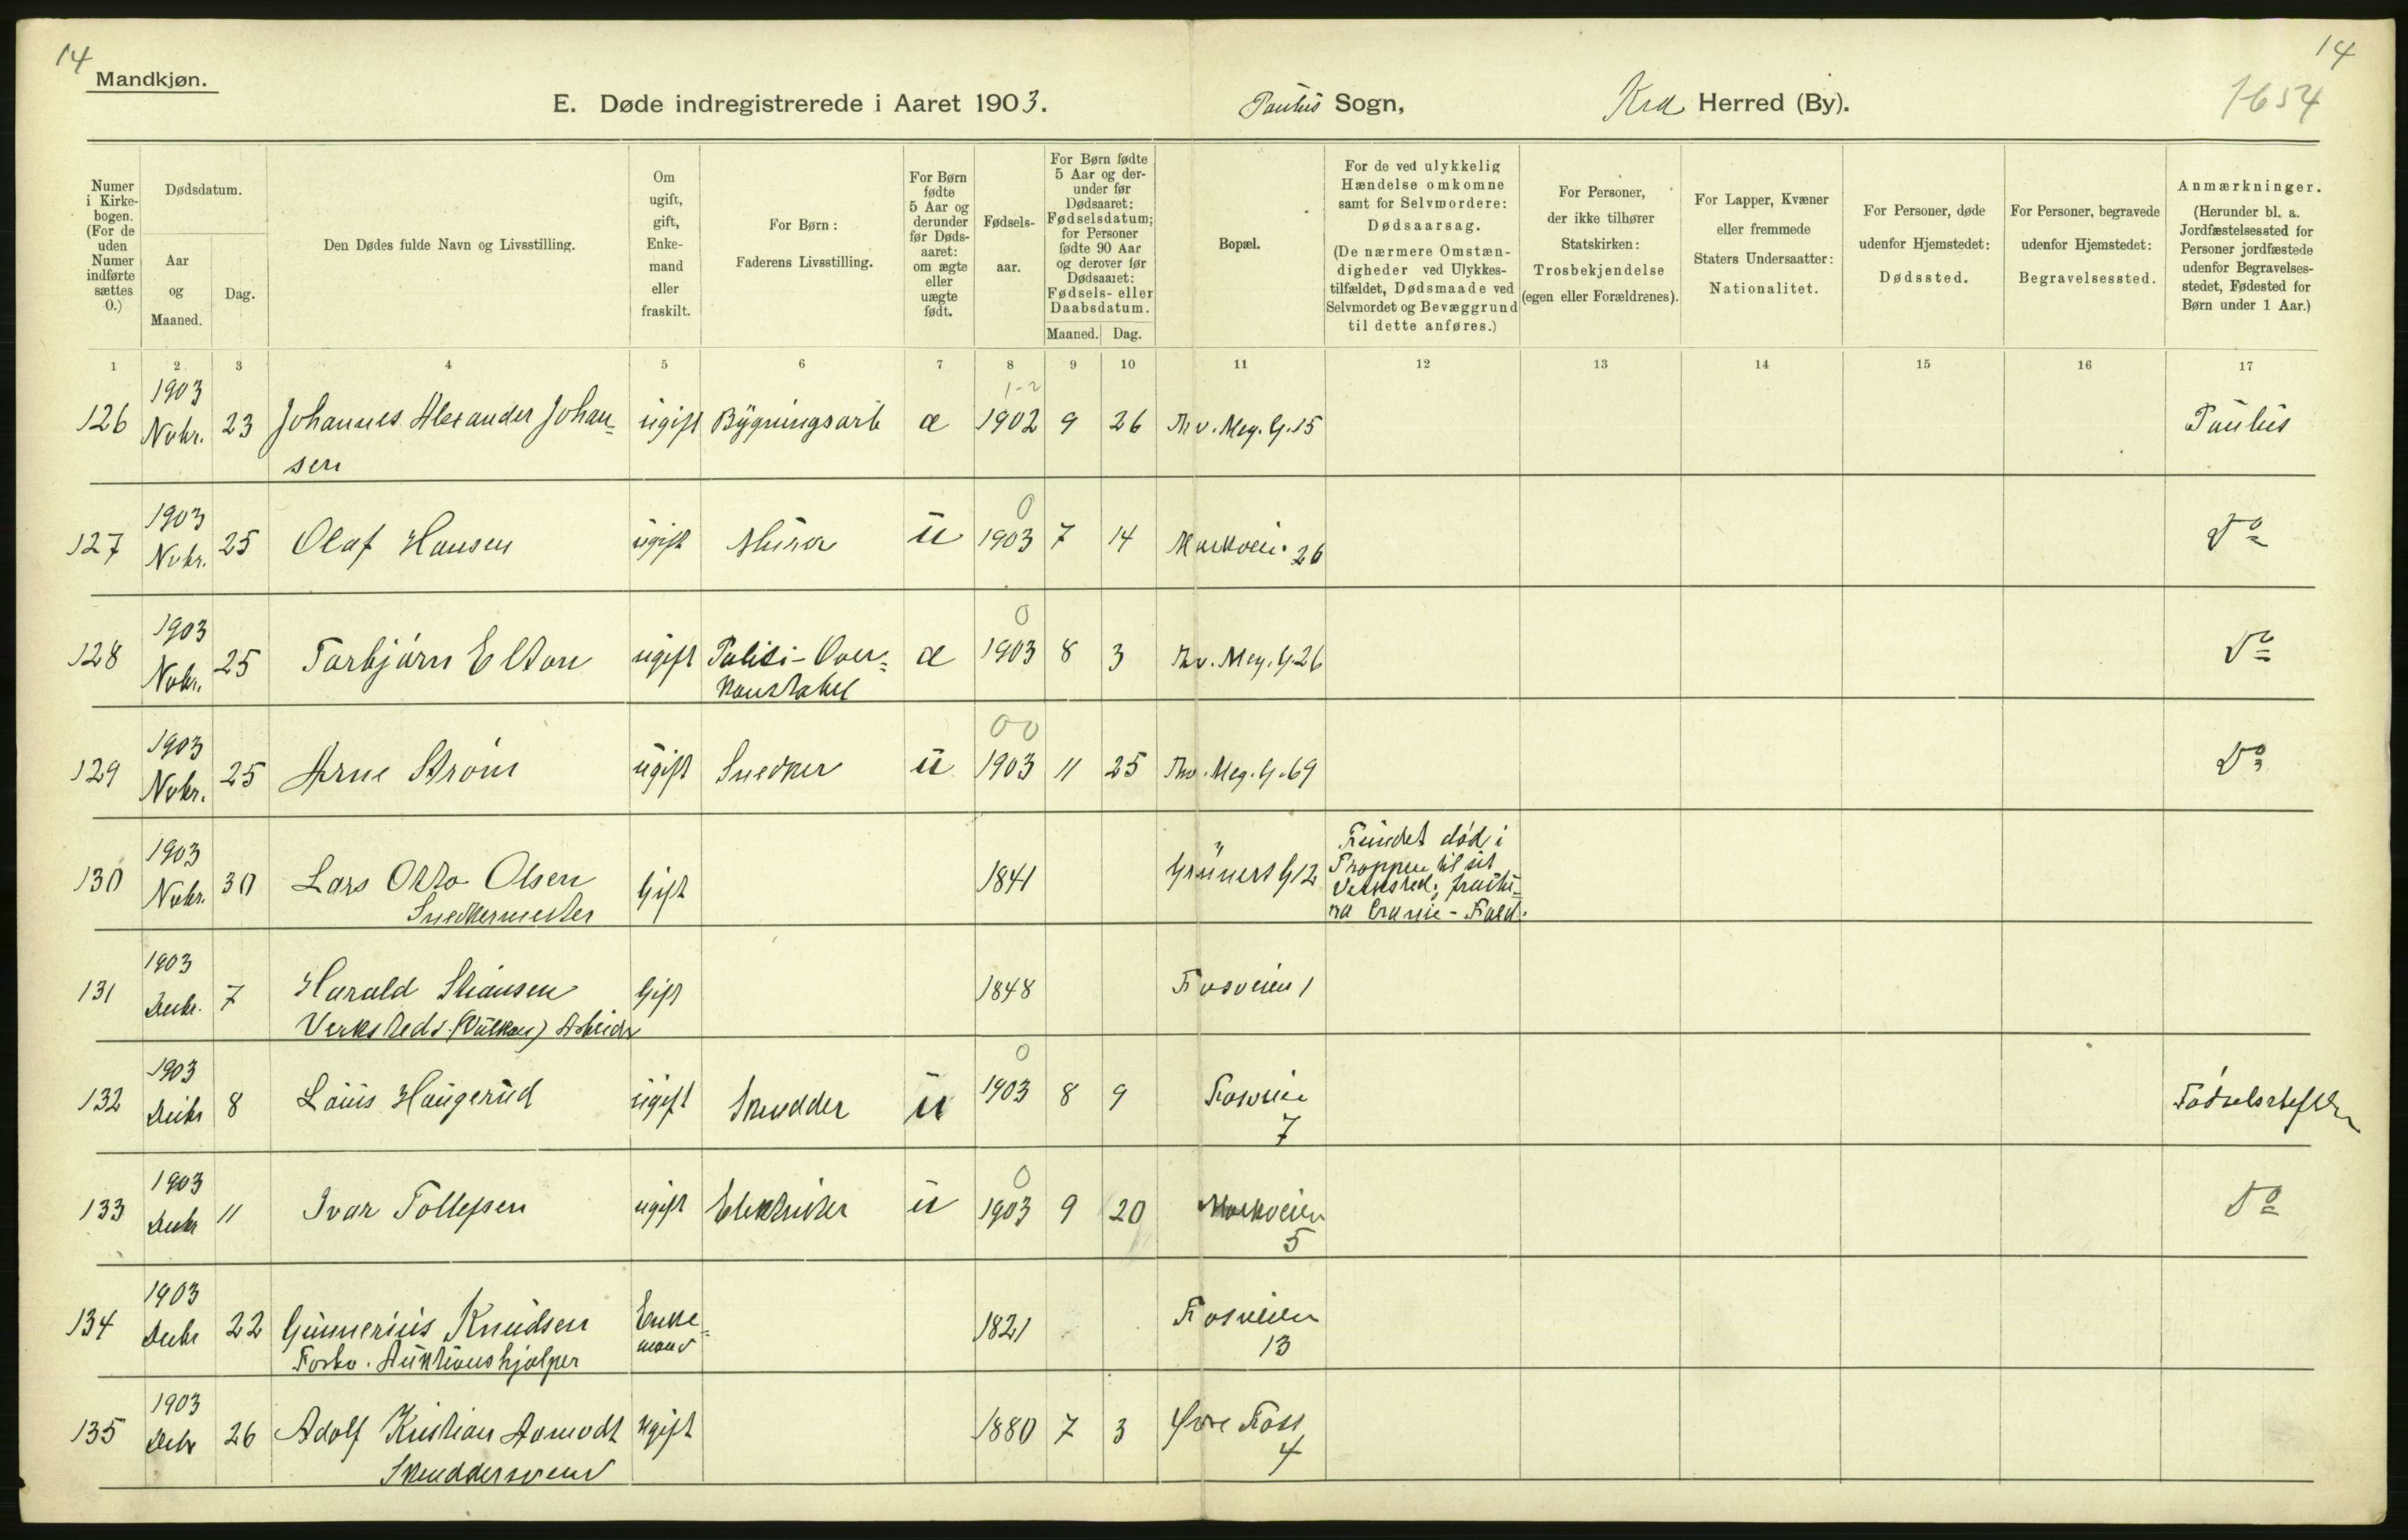 14
14
Mandkjøn.
E. Døde indregistrerede i Aaret 1903.
Paulus Sogn,
Kra Herred (By).
1654
Numer i Kirke-bogen. (For de uden Numer indførte sættes 0.)
Dødsdatum.
Aar og Maaned.
Dag.
Den Dødes fulde Navn og Livsstilling.
Om ugift, gift, Enke-mand eller fraskilt.
For Børn: Faderens Livsstilling.
For Børn fødte 5 Aar og derunder før Døds-aaret: om ægte eller uægte født.
Fødsels-aar.
For Børn fødte 5 Aar og der-under før Dødsaaret: Fødselsdatum; for Personer fødte 90 Aar og derover før Dødsaaret: Fødsels- eller Daabsdatum.
Maaned. Dag.
Bopæl.
For de ved ulykkelig Hændelse omkomne samt for Selvmordere: Dødsaarsag. (De nærmere Omstæn-digheder ved Ulykkes-tilfældet, Dødsmaade ved Selvmordet og Bevæggrund til dette anføres.)
For Personer, der ikke tilhører Statskirken: Trosbekjendelse (egen eller Forældrenes).
For Lapper, Kvæner eller fremmede Staters Undersaatter: Nationalitet.
For Personer, døde udenfor Hjemstedet: Dødssted.
For Personer, begravede udenfor Hjemstedet: Begravelsessted.
Anmærkninger. (Herunder bl. a. Jordfæstelsessted for Personer jordfæstede udenfor Begravelses-stedet, Fødested for Børn under 1 Aar.)
1 2 3 4 5 6 7 8 9 10 11 12 13 14 15 16 17
1903 1-2
126 Nvbr. 23 Johannes Alexander Johan- ugift Bygningsarb æ 1902 9 26 Thv. Mey. G. 15 Paulus
sen
1903 0
127 Nvbr. 25 Olaf Hansen ugift Murer u 1903 7 14 Markvei. 26 Do
1903 0
128 Nvbr. 25 Torbjørn Elton ugift Politi-Over- æ 1903 8 3 Thv. Mey. G. 26 Do
konstabel
1903 00
129 Nvbr. 25 Arne Strøm ugift Snedker u 1903 11 25 Thv. Mey. G. 69 Do
1903 Fundet død i
130 Nvbr. 30 Lars Otto Olsen Gift 1841 Grüners G 12 Trappen til sit
Snedkermester Verksted;
1903
131 Decbr. 7 Harald Stiansen Gift 1848 Fosveien 1
Verksteds (Vulkan) Arbeider
1903 0
132 Decbr 8 Louis Haugerud ugift Skrædder u 1903 8 9 Fosveien Fødselsstiftelsen
7
1903 0
133 Decbr 11 Ivar Tollefsen ugift Elektriker u 1903 9 20 Markveien Do
5
1903
134 Decbr 22 Gunnerius Knudsen Enke- 1821 Fosveien
Forhv. Auktionshjælper mand 13
1903
135 Decbr 26 Adolf Kristian Aamodt ugift 1880 7 3 Øvre Foss
Skræddersvend 4